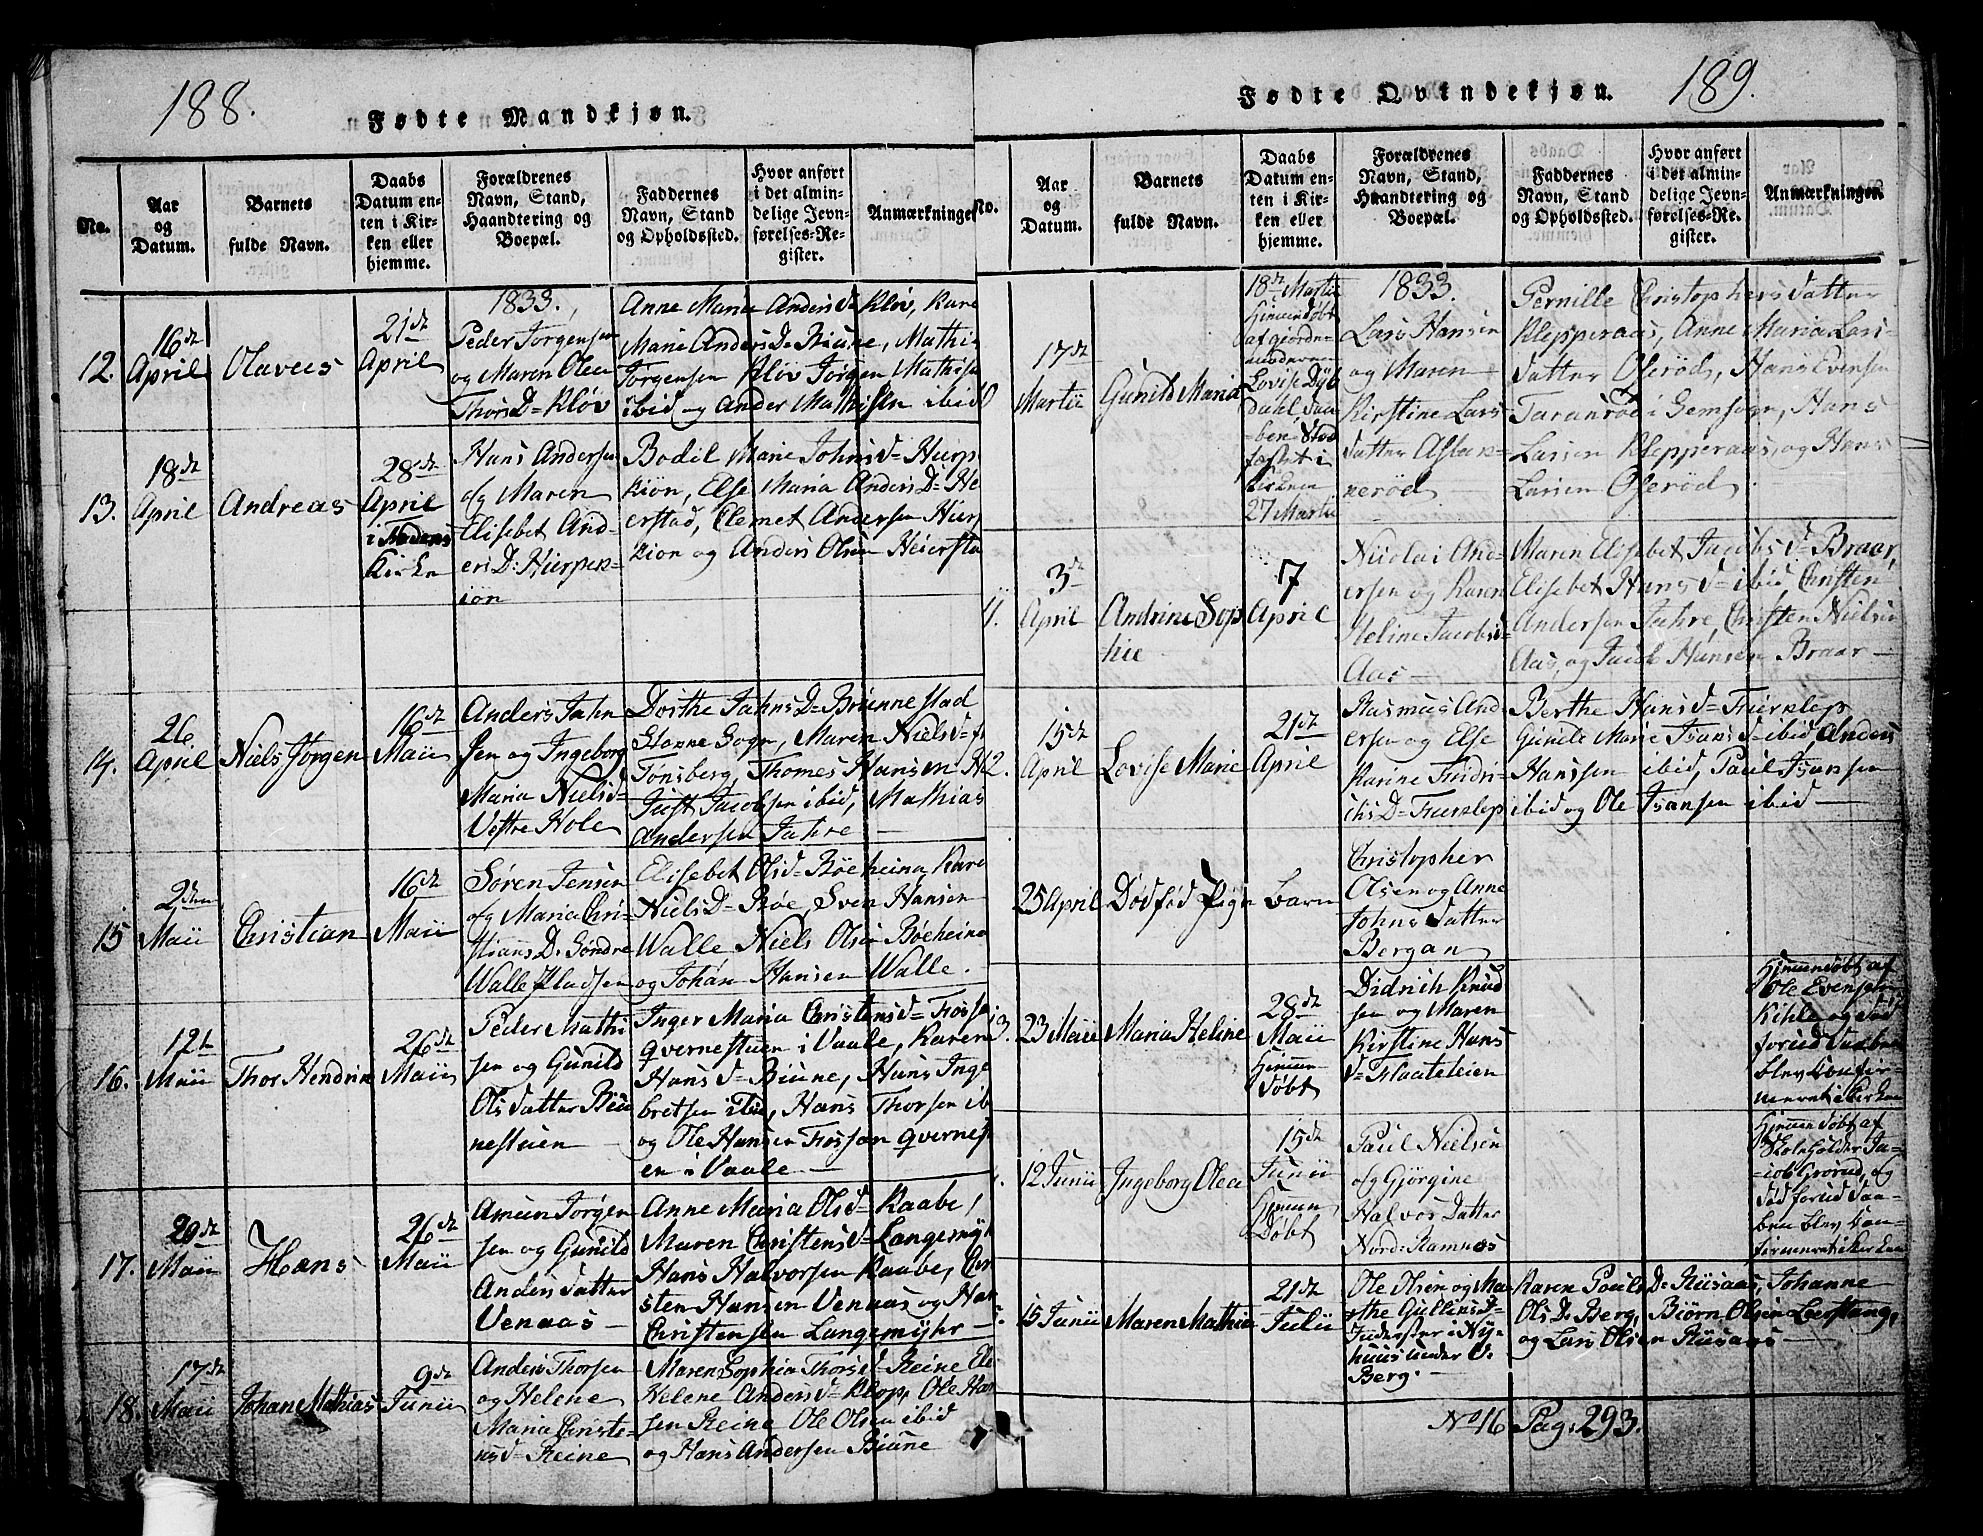 188.
Fødte Mandkjøn.
No.
Aar
og
Datum.
Barnets
fulde Navn.
Daabs
Datum en-
ten i Kir-
ken eller
hjemme.
Forældrenes
Navn, Stand,
Haandtering og
Boepæl.
Faddernes
Navn, Stand
og Opholdssted.
Hvor anført
i det almin-
delige Jevn-
førelses-Re-
gister.
Anmærkninger
12.
16de
April
Olaves
21de
April
1833.
Peder Jørgensen
og Maren Olea
Thors D= Kløv
Anne Maria Anders d= Kløv, Kare
Marie Anders D= Biune, Mathi
Jørgensen Kløv Jørgen Mathise
ibid og Ander Mathisen ibid
13.
18de
April
Andreas
28de
April
i
Kirke
Hans Andersen
og Maren
Elisebet And-
ers D:
ion
Bodil Marie Johns d=
kiøn, Else Maria Anders D= He
erstad, Clemet Andersen
kion og Anders Olsen Heiersta
14.
26
April
Niels Jørgen
16de
Maii
Anders Jahn
sen og Ingeborg
Maria Niels d=
Vestre Hole
Dorthe Jahns D= Brunnestad
Stonne Sogn, Maren Niels d=
Tønsberg, Thomes Hansen
Just Jacobsen ibid, Mathias
Andersen Jahre
15
2den
Maii
Christian
16de
Maii
Søren Jensen
og Maria Chri-
stians D. Søndre
Walle
Elisebet Ols d= Bøeheina, Kare
Niels D= Røe, Sven Hansen
Walle, Niels Olsen Bøeheine
og Johan Hansen Walle.
16.
12te
Maii
Thor Hendrik
26de
Maii
Peder Mathi
sen og Gunild
Ols datter Biu
nestuen
Inger Maria Christens d=
Qvernestuen i Vaale, Karen
Hans d= Biune, Hans Inge
bretsen ibid, Hans Thorsen ib
og Ole Hansen Fossan Qvernest
en i Vaale
17.
20de
Maii
Hans
26de
Maii
Amun Jørgen
sen og Gunild
Anders datter
Venaas
Anne Maria Ols d= Raabe,
Maren Christens d= Langemyhr
Hans Halvorsen Raabe, Chri
sten Hansen Venaas og Han
Christensen Langemyhr
18.
17de
Maii
Johan Mathias
9de
Junii
Anders Thorsen
og Helene
Maria Christe-
ns d= Reine
Maren Sophia Thors d= Reine Ele
Helene Anders d= Klop, Ole Han
sen Reine Ole Olsen ibid
og Hans Andersen Biune
189.
Fødte Qvindekjøn.
No.
Aar
og
Datum.
Barnets
fulde Navn.
Daabs
Datum en-
ten i Kir-
ken eller
hjemme.
Forældrenes
Navn, Stand,
Haandtering og
Boepæl.
Faddernes
Navn, Stand
og Opholdssted.
Hvor anført
i det almin-
delige Jevn-
førelses-Re-
gister.
Anmærkninger
17de
Martii
Gunild Maria
18de Martii
Hjemmedøbt
af giorde-
moderen
Lovise Dyb
dahl, Daa
ben Stad
fæstet i
Kirken
27 Martii
1833.
Lars Hansen
og Maren
Kirstine Lars
datter
nerød
Pernille Christophers datter
Klepperaas, Anne Maria Lars-
datter Oserød, Hans Evensen
Taranrød i Semsogn, Hans
Larsen Klepperaas, og Hans
Larsen Oserød
11.
3de
April
Andrine Sop
hie
7
April
Nicolai And-
ersen og Karen
Heline Jacobs d=
Aas
Maren Elisebet Jacobs d= Braar,
Elisebet Hans d= ibid Christen
Andersen Jahre, Christen Niels
Aas, og Jacob Hansen Braar
12.
15de
April
Lovise Marie
21de
April
Rasmus And
ersen og Else
Karine Fridri-
chs D=
Berthe Hans d=
Gunild Marie Isans d= ibid, Anders
Hanssen ibid, Paul Isansen
ibid og Ole Isansen ibid
25 April
Dødfød Pige
Barn
Christopher
Olsen og Anne
Johns datter
Bergan
13.
23 Maii
Maria Heline
28de
Maii
Hjemme
døbt
Didrich Knud
sen og Maren
Kirstine Hans
d=
Hjemmedøbt af
Ole Evensen
Kihle og den
forud Daaben
blev Confir-
meret i Kirken
12 Junii
Ingeborg Olea
15de
Junii
Hjemme
Døbt
Paul Nielsen
og Gjørgine
Halvors Datter
Nord: Ramnæs
Hjemmedøbt af
Skoleholder Ja-
cob Grorud, og
død forud Daa-
ben blev Con-
firmeret i Kirken
15 Junii
Maren Mathie
21de
Julii
Ole Olsen og Ma
rthe Gullins d=
Inderster i Ny-
huus under V.
Berg.
Karen Pouls D= Rusaas, Johanne
Ols D= Berg, Biørn Olsen Leerstang,
og Lars Olsen Rusaas
No 16 Pag. 293.